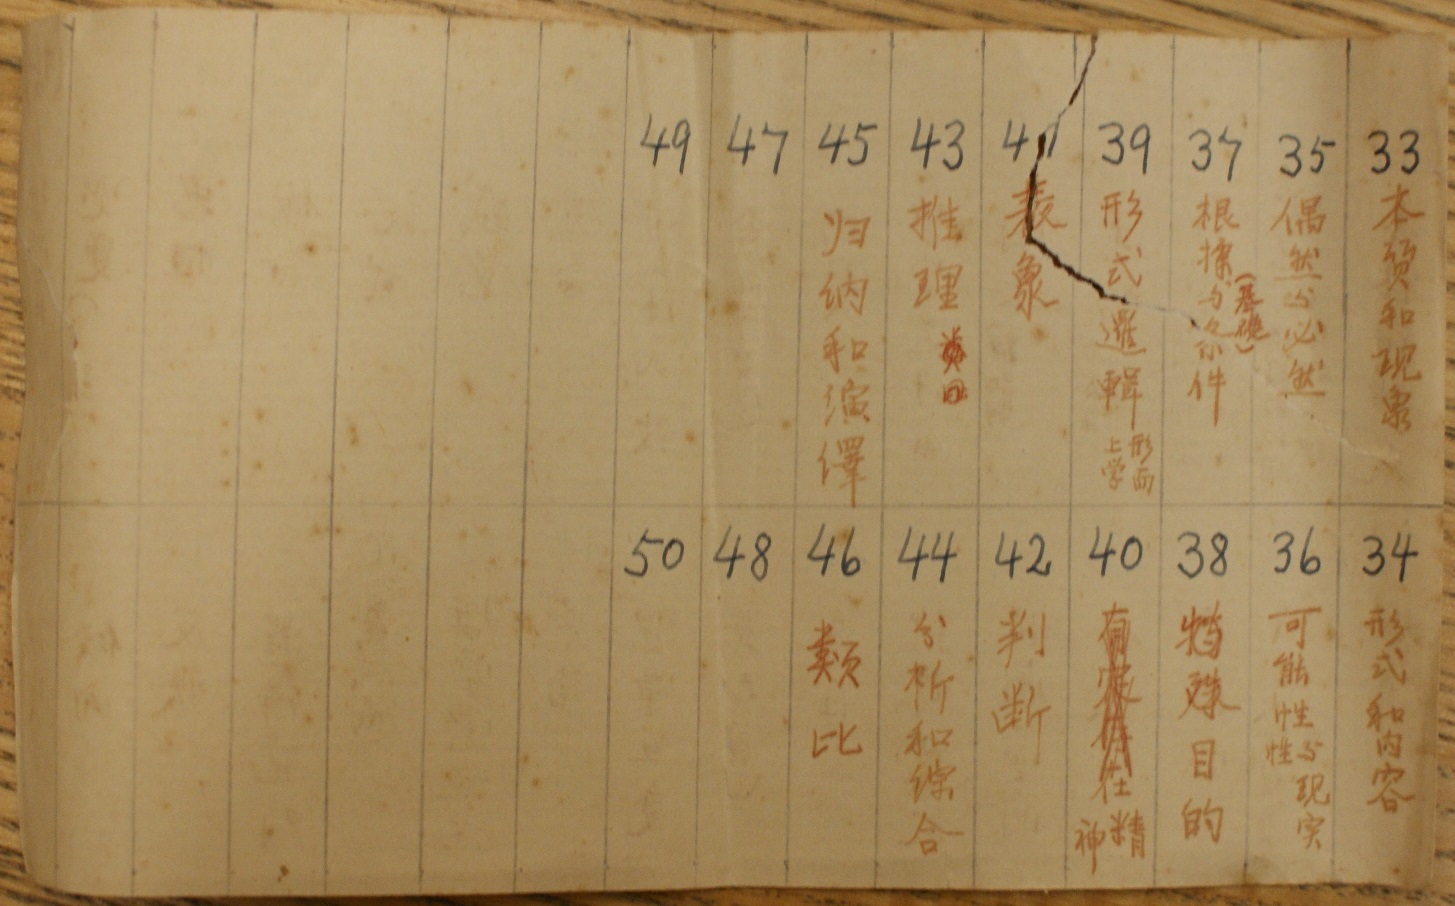 33 本质和现象
34 形式和内容
35 偶然与必然
36 可能性与现实性
37 根據与条件
(基礎)
38 特殊目的
39 形式邏輯
形而上学
40
精神
41 表象
42 判断
43 推理
44 分析和综合
45 归纳和演繹
46 類比
47
48
49
50